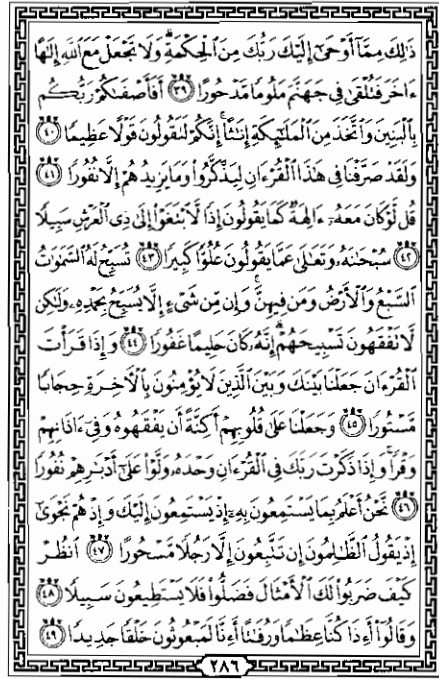 ذَٰلِكَ مِمَّا أَوْحَىٰ إِلَيْكَ رَبُّكَ مِنَ الْحِكْمَةِ ۗ وَلَا تَجْعَلْ مَعَ اللَّهِ إِلَٰهًا
ءَاخَرَ فَتُلْقَىٰ فِي جَهَنَّمَ مَلُومًا مَّدْحُورًا ﴿٣٩﴾ أَفَأَصْفَىٰكُمْ رَبُّكُم
بِالْبَنِينَ وَاتَّخَذَ مِنَ الْمَلَٰٓئِكَةِ إِنَٰثًا ۚ إِنَّكُمْ لَتَقُولُونَ قَوْلًا عَظِيمًا ﴿٤٠﴾
وَلَقَدْ صَرَّفْنَا فِي هَٰذَا الْقُرْءَانِ لِيَذَّكَّرُوا وَمَا يَزِيدُهُمْ إِلَّا نُفُورًا ﴿٤١﴾
قُل لَّوْ كَانَ مَعَهُۥٓ ءَالِهَةٌ كَمَا يَقُولُونَ إِذًا لَّابْتَغَوْا إِلَىٰ ذِي الْعَرْشِ سَبِيلًا
﴿٤٢﴾ سُبْحَٰنَهُۥ وَتَعَٰلَىٰ عَمَّا يَقُولُونَ عُلُوًّا كَبِيرًا ﴿٤٣﴾ تُسَبِّحُ لَهُ السَّمَٰوَٰتُ
السَّبْعُ وَالْأَرْضُ وَمَن فِيهِنَّ ۚ وَإِن مِّن شَيْءٍ إِلَّا يُسَبِّحُ بِحَمْدِهِۦ وَلَٰكِن
لَّا تَفْقَهُونَ تَسْبِيحَهُمْ ۗ إِنَّهُۥ كَانَ حَلِيمًا غَفُورًا ﴿٤٤﴾ وَإِذَا قَرَأْتَ
الْقُرْءَانَ جَعَلْنَا بَيْنَكَ وَبَيْنَ الَّذِينَ لَا يُؤْمِنُونَ بِالْءَاخِرَةِ حِجَابًا
مَّسْتُورًا ﴿٤٥﴾ وَجَعَلْنَا عَلَىٰ قُلُوبِهِمْ أَكِنَّةً أَن يَفْقَهُوهُ وَفِيٓ ءَاذَانِهِمْ
وَقْرًا ۚ وَإِذَا ذَكَرْتَ رَبَّكَ فِي الْقُرْءَانِ وَحْدَهُۥ وَلَّوْا عَلَىٰٓ أَدْبَٰرِهِمْ نُفُورًا
﴿٤٦﴾ نَّحْنُ أَعْلَمُ بِمَا يَسْتَمِعُونَ بِهِۦٓ إِذْ يَسْتَمِعُونَ إِلَيْكَ وَإِذْ هُمْ نَجْوَىٰٓ
إِذْ يَقُولُ الظَّٰلِمُونَ إِن تَتَّبِعُونَ إِلَّا رَجُلًا مَّسْحُورًا ﴿٤٧﴾ انظُرْ
كَيْفَ ضَرَبُوا لَكَ الْأَمْثَالَ فَضَلُّوا فَلَا يَسْتَطِيعُونَ سَبِيلًا ﴿٤٨﴾
وَقَالُوٓا أَءِذَا كُنَّا عِظَٰمًا وَرُفَٰتًا أَءِنَّا لَمَبْعُوثُونَ خَلْقًا جَدِيدًا ﴿٤٩﴾
٢٨٦